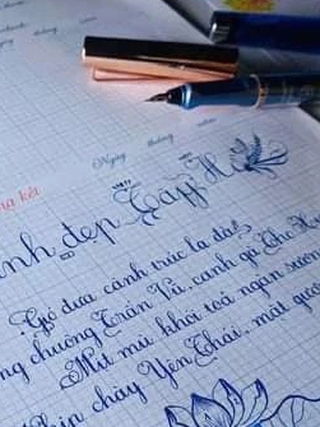 Ngày tháng năm
kết
Cảnh đẹp Tây Hồ
Gió đưa cành trúc la đà
chuông Trấn Vũ, canh gà Thọ
Mịt mù khói toả ngàn sương
chày Yên Thái, mặt gươ